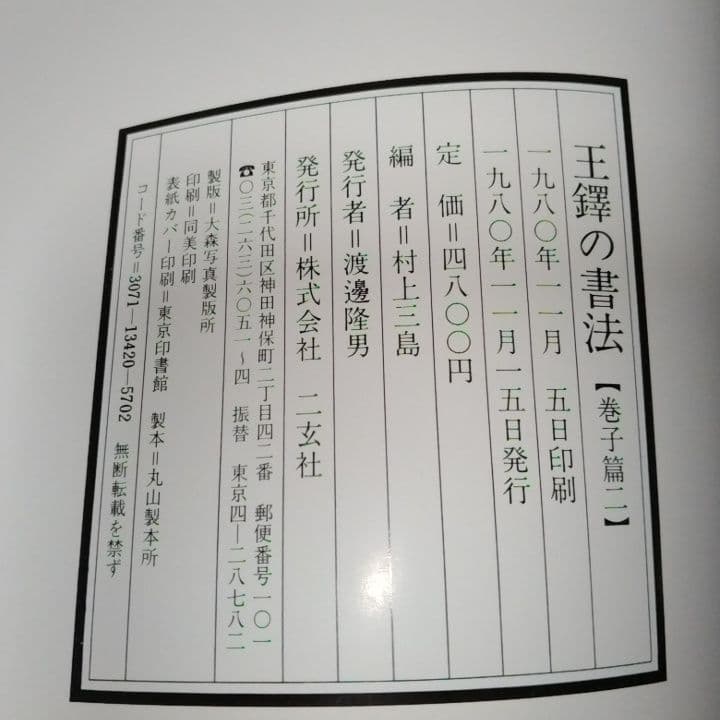 王鐸の書法【巻子篇二】
一九八〇年一一月　五日印刷
一九八〇年一一月一五日発行
定　価＝四八〇〇円
編　者＝村上三島
発行者＝渡邊隆男
発行所＝株式会社　二玄社
東京都千代田区神田神保町二丁目四二番　郵便番号一〇一
☎〇三(二六三)六〇五一～四　振替　東京四―二八七八二
製版＝大森写真製版所
印刷＝同美印刷
表紙カバー印刷＝東京印書館　製本＝丸山製本所
コード番号＝3071―13420―5702　無断転載を禁ず